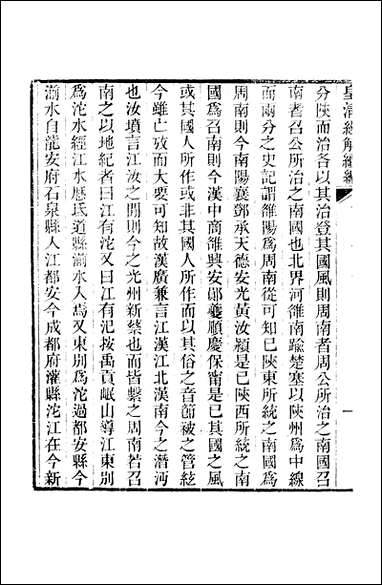 皇清經解續編
一
分陝而治各以其治登其國風則周南者周公所治之南國召
南者召公所治之南國也北界河雒南踰楚塞以陝州爲中線
而兩分之史記謂雒陽爲周南從可知巳陝東所統之南國爲
周南則今南陽襄鄧承天德安光黃汝潁是巳陝西所統之南
國爲召南則今漢中商雒興安鄖夔順慶保甯是巳其國之風
或其國人所作或非其國人所作而以其俗之音節被之管絃
今雖亡攷而大要可知故漢廣兼言江漢江北漢南今之潛沔
也汝墳言江汝之閒則今之光州新蔡也而皆繫之周南若召
南之以地紀者曰江有沱又曰江有汜按禹貢岷山導江東別
爲沱水經江水歷氐道縣湔水入焉又東別爲沱過都安縣今
湔水自龍安府石泉縣入江都安今成都府灌縣沱江在今新